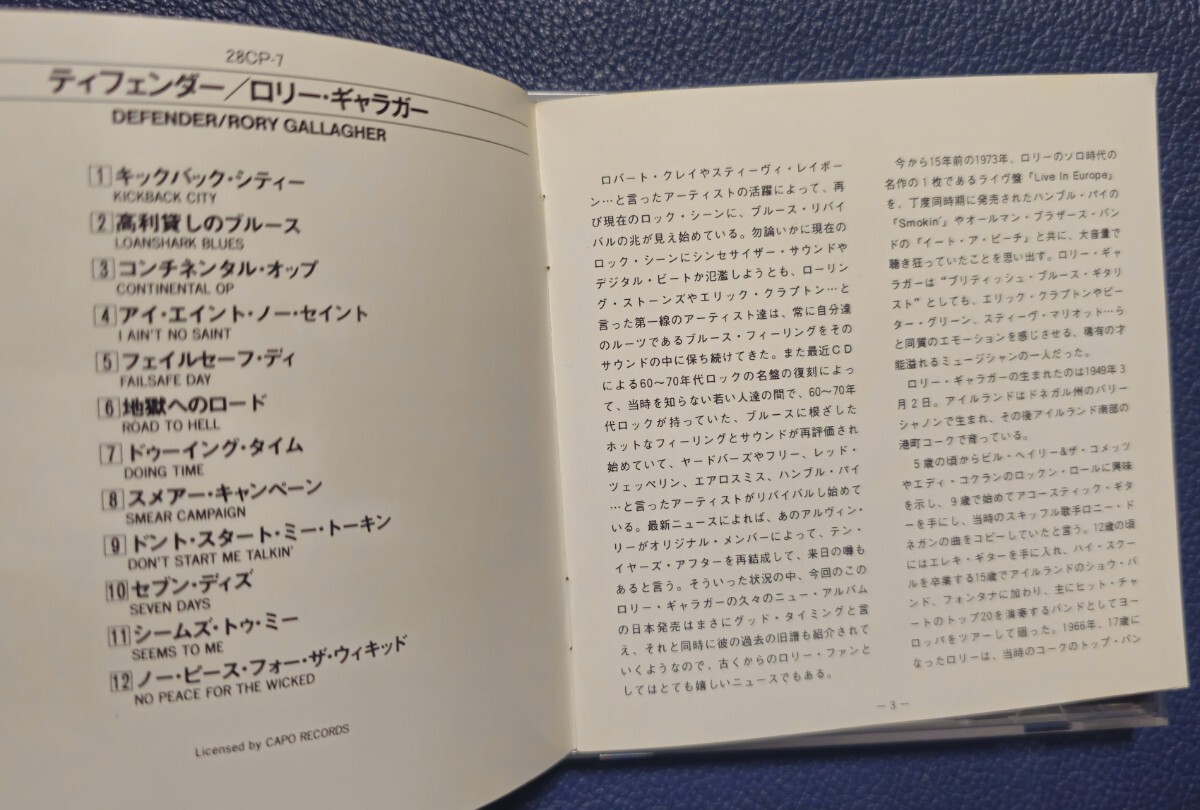 28CP-7
ディフェンダー／ロリー・ギャラガー
DEFENDER/RORY GALLAGHER
1 キックバック・シティー
KICKBACK CITY
2 高利貸しのブルース
LOANSHARK BLUES
3 コンチネンタル・オップ
CONTINENTAL OP
4 アイ・エイント・ノー・セイント
I AIN'T NO SAINT
5 フェイルセーフ・ディ
FAILSAFE DAY
6 地獄へのロード
ROAD TO HELL
7 ドゥーイング・タイム
DOING TIME
8 スメアー・キャンペーン
SMEAR CAMPAIGN
9 ドント・スタート・ミー・トーキン
DON'T START ME TALKIN'
10 セブン・ディズ
SEVEN DAYS
11 シームズ・トゥ・ミー
SEEMS TO ME
12 ノー・ピース・フォー・ザ・ウィキッド
NO PEACE FOR THE WICKED
Licensed by CAPO RECORDS
ロバート・クレイやスティーヴィ・レイボー
ン…と言ったアーティストの活躍によって、再
び現在のロック・シーンに、ブルース・リバイ
バルの兆が見え始めている。勿論いかに現在の
ロック・シーンにシンセサイザー・サウンドや
デジタル・ビートか氾濫しようとも、ローリン
グ・ストーンズやエリック・クラプトン…と
言った第一線のアーティスト達は、常に自分達
のルーツであるブルース・フィーリングをその
サウンドの中に保ち続けてきた。また最近ＣＤ
による60〜70年代ロックの名盤の復刻によっ
て、当時を知らない若い人達の間で、60〜70年
代ロックが持っていた、ブルースに根ざした
ホットなフィーリングとサウンドが再評価され
始めていて、ヤードバーズやフリー、レッド・
ツェッペリン、エアロスミス、ハンブル・パイ
…と言ったアーティストがリバイバルし始めて
いる。最新ニュースによれば、あのアルヴィン・
リーがオリジナル・メンバーによって、テン・
イヤーズ・アフターを再結成して、来日の噂も
あると言う。そういった状況の中、今回のこの
ロリー・ギャラガーの久々のニュー・アルバム
の日本発売はまさにグッド・タイミングと言
え、それと同時に彼の過去の旧譜も紹介されて
いくようなので、古くからのロリー・ファンと
してはとても嬉しいニュースでもある。
今から15年前の1973年、ロリーのソロ時代の
名作の１枚であるライヴ盤『Live In Europe』
を、丁度同時期に発売されたハンブル・パイの
『Smokin'』やオールマン・ブラザース・バン
ドの『イート・ア・ピーチ』と共に、大音量で
聴き狂っていたことを思い出す。ロリー・ギャ
ラガーは“ブリティッシュ・ブルース・ギタリ
スト”としても、エリック・クラプトンやピー
ター・グリーン、スティーヴ・マリオット…ら
と同質のエモーションを感じさせる、稀有の才
能溢れるミュージシャンの一人だった。
ロリー・ギャラガーの生まれたのは1949年３
月２日。アイルランドはドネガル州のバリー・
シャノンで生まれ、その後アイルランド南部の
港町コークで育っている。
５歳の頃からビル・ヘイリー&ザ・コメッツ
やエディ・コクランのロックン・ロールに興味
を示し、９歳で始めてアコースティック・ギタ
ーを手にし、当時のスキッフル歌手ロニー・ド
ネガンの曲をコピーしていたと言う。12歳の頃
にはエレキ・ギターを手に入れ、ハイ・スクー
ルを卒業する15歳でアイルランドのショウ・バ
ンド、フォンタナに加わり、主にヒット・チャ
ートのトップ20を演奏するバンドとしてヨー
ロッパをツアーして廻った。1966年、17歳に
なったロリーは、当時のコークのトップ・バン
— 3 —